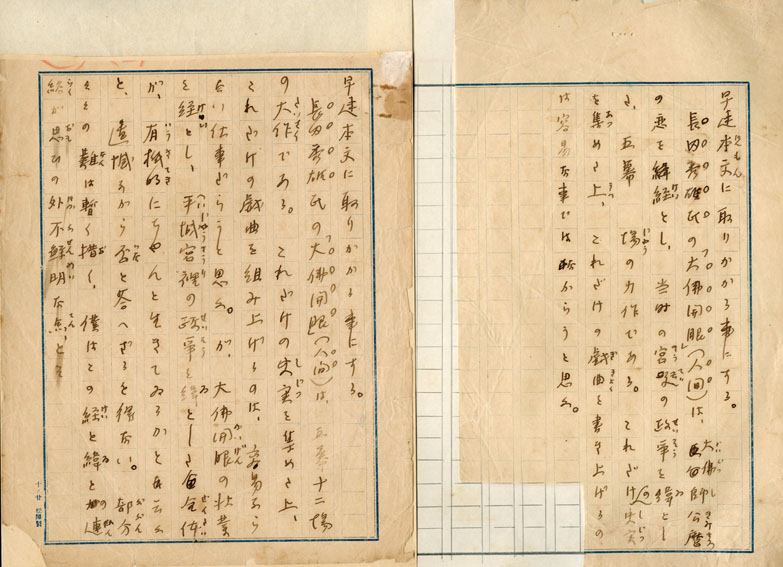 早速本文に取りかかる事にする。
長田秀雄氏の「大佛開眼」(人間)は、大佛師公麿
の恋を経とし、当時の宮廷の政争を緯とし
た、五幕 場の力作である。これだけ史実
を集めた上、これだけの戯曲を書き上げるの
は容易な事では無からうと思ふ。
早速本文に取りかかる事にする。
長田秀雄氏の「大佛開眼」(人間)は、五幕十二場
の大作である。これだけの史実を集めた上、
これだけの戯曲を組み上げるのは、容易なら
ない仕事だらうと思ふ。が、大佛開眼の状業
を経とし、平城宮裡の政争を緯とした全体
が、有機的にちやんと生きてゐるかと云ふ
と、遺憾ながら否と答へざるを得ない。部分
々々の難は暫く措く、僕はこの経と緯との連
絡が思ひの外不鮮明な点に、
十ノ廿 松屋製